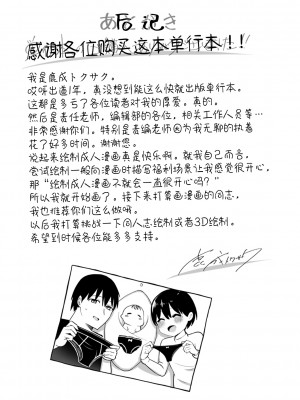 后记
感谢各位购买这本单行本!!
我是鹿成トクサク。
哎呀出道1年,真没想到能这么快就出版单行本。
这都是多亏了各位读者对我的厚爱。真的。
然后是责任老师,编辑部的各位,相关工作人员等…
非常感谢你们。特别是责编老师㊛为我无聊的执着
花了好多时间。谢谢您。
说起来绘制成人漫画真是快乐啊。就我自己而言,
尝试绘制一般向漫画时描写福利场景让我感觉很开心,
那“绘制成人漫画不就会一直很开心吗?”
所以我就开始画了。接下来打算画漫画的同志,
我也推荐你们这么做哦。
以后我打算挑战一下同人志绘制或者3D绘制。
希望到时候各位能多多支持。